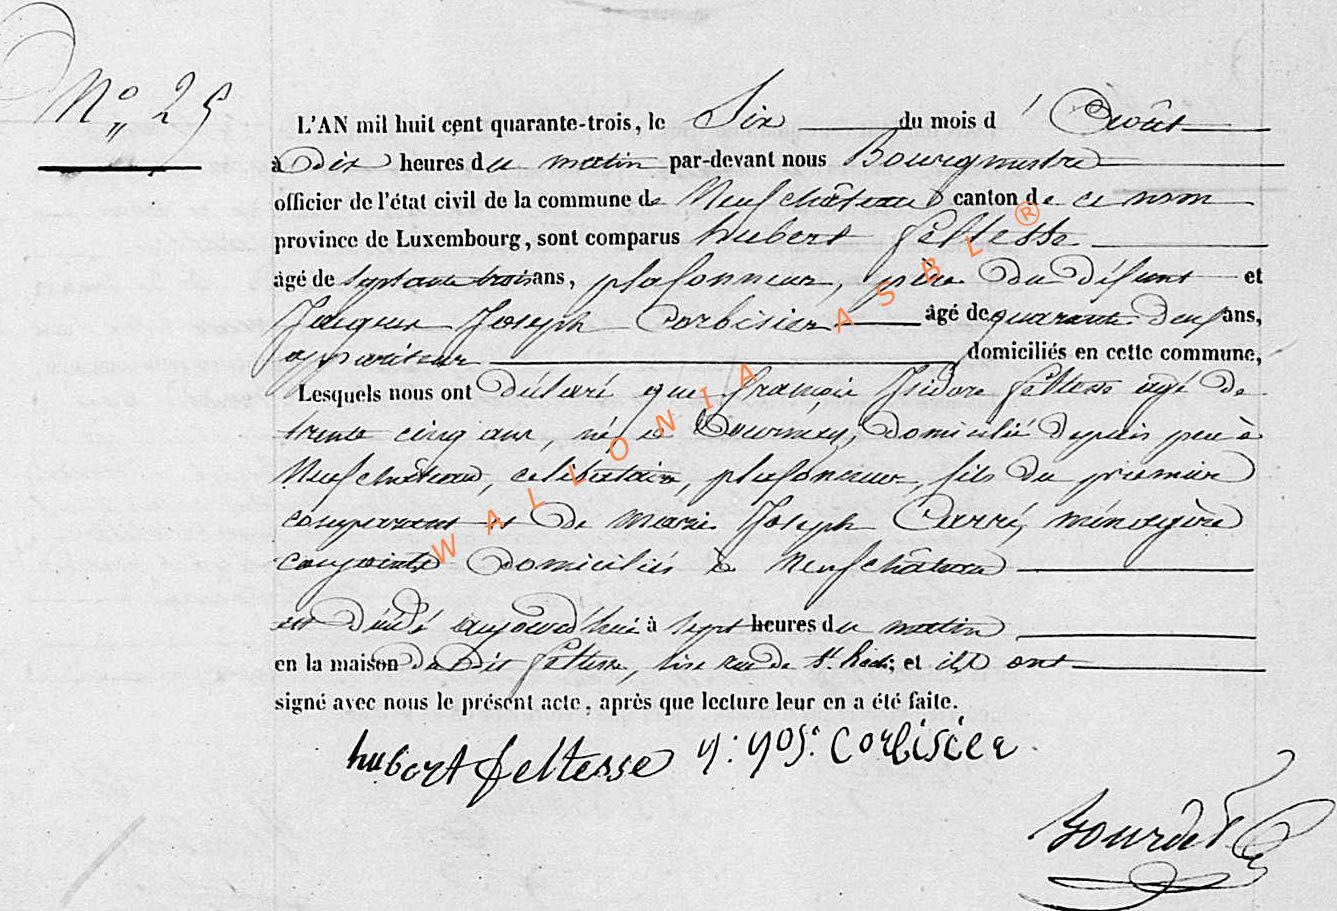 N° 25
L'AN mil huit cent quarante-trois, le Six du mois d'Août
à Dix heures du matin par-devant nous Bourgmestre
officier de l'état civil de la commune de Neufchâteau canton de ce nom
province de Luxembourg, sont comparus hubert feltesse
âgé de septante trois ans, plafonneur, père du défunt et
Jacques Joseph Corbisier âgé de quarante deux ans,
appariteur domiciliés en cette commune,
Lesquels nous ont déclaré que françois Isidore feltesse âgé de
trente cinq ans, né à Tournay, domicilié depuis peu à
Neufchâteau, célibataire, plafonneur, fils du premier
comparant et de marie Joseph Carré, ménagère
conjoints domiciliés à Neufchâteau
est décédé aujourd'hui à sept heures du matin
en la maison du dit feltesse, sise rue de St. Roch; et ils ont
signé avec nous le présent acte, après que lecture leur en a été faite.
hubert feltesse j: jos: Corbisier
Bourdet
WALLONIA ASBL ®